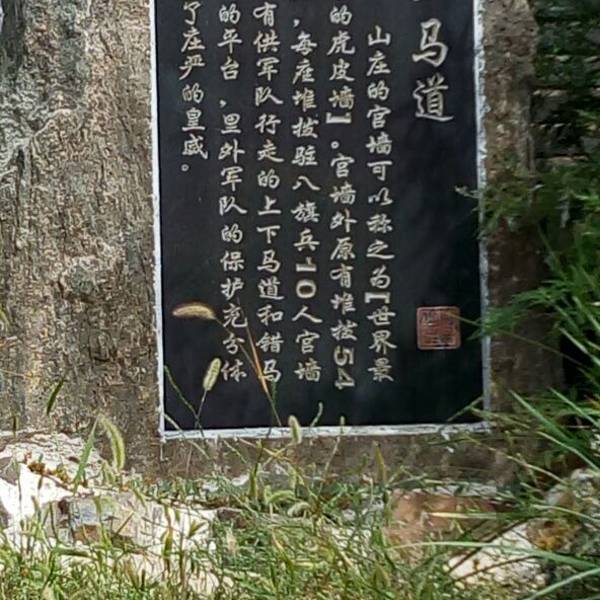 马道
山庄的宫墙可以称之为【世界景
的虎皮墙】。宫墙外原有堆拔54
,每座堆拔驻八旗兵10人宫墙
有供军队行走的上下马道和错马
的平台,里外军队的保护充分体
了庄严的皇威。